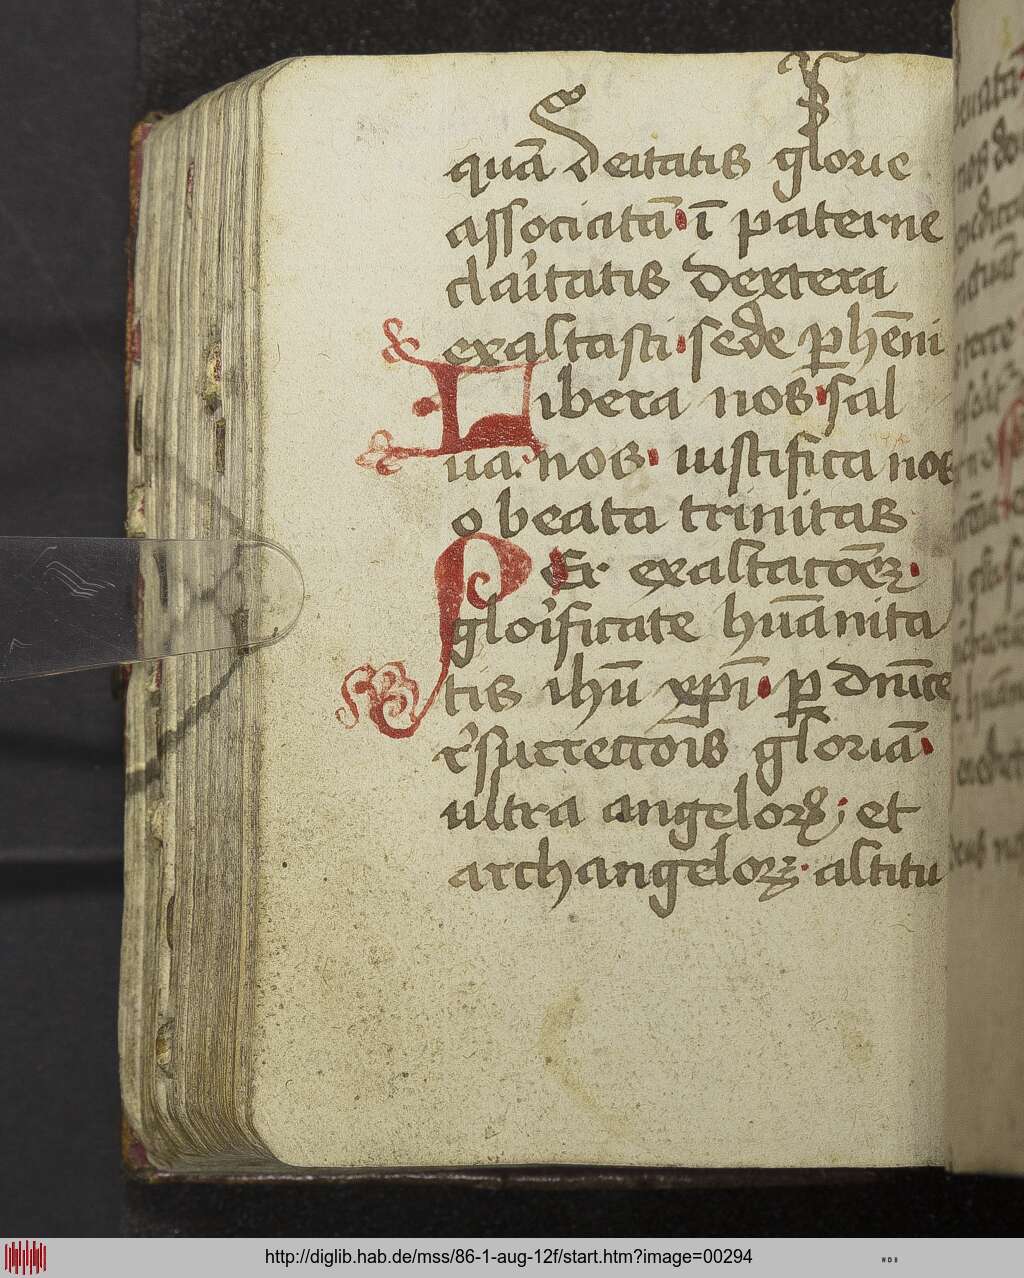 quā deitatis glorie
associatā · ī paterne
claritatis dextera
exaltasti · sede ꝑhēni
Libera nos · sal
ua nos · iustifica nos
o beata trinitas
PEr exaltatōēꝫ ·
glorificate hūanita
tis ihū xp̄i · ꝑ dnīce
r̓surrectōis gloriā ·
ultra angeloꝝ ; et
archangeloꝝ · altitu
http://diglib.hab.de/mss/86-1-aug-12f/start.htm?image=00294